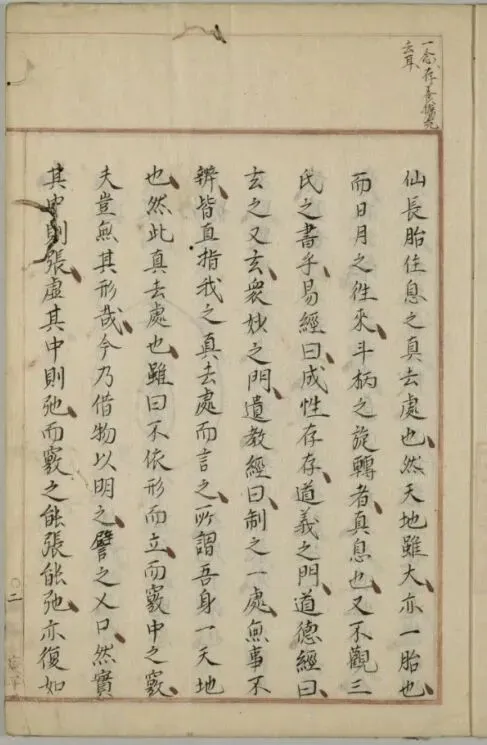 一念存養攝究
去耳
仙長胎住息之真去處也然天地雖大亦一胎也
而日月之往來斗柄之旋轉者真息也又不觀三
氏之書乎易經曰成性存存道義之門道德經曰
玄之又玄衆妙之門遺教經曰制之一處無事不
辨皆直指我之真去處而言之所謂吾身一天地
也然此真去處也雖曰不依形而立而竅中之竅
夫豈無其形哉今乃借物以明之譬之人口然實
其中則張虛其中則弛而竅之能張能弛亦復如
二